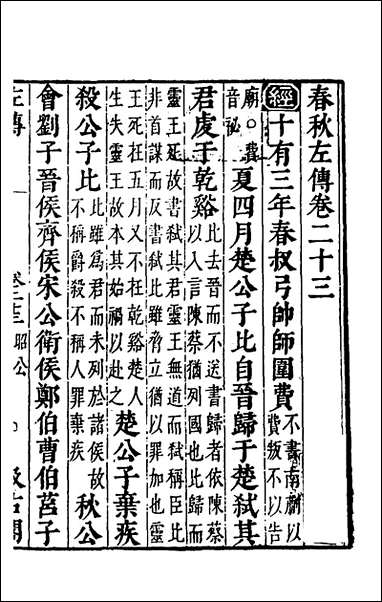 春秋左傳卷二十三
經十有三年春叔弓帥師圍費
不書南蒯以
費叛不以告
廟○費
音祕
夏四月楚公子比自晉歸于楚弒其
君虔于乾谿
比去晉而不送書歸者依陳蔡
以入言陳蔡猶列國也比歸而
靈王死故書弒其君靈王無道而弒稱臣比
非首謀而反書弒比雖脅立猶以罪加也靈
王死在五月又不在乾谿楚人
生失靈王故本其始禍以赴之
楚公子棄疾
殺公子比
比雖爲君而未列於諸侯故
不稱爵殺不稱人罪棄疾
秋公
會劉子晉侯齊侯宋公衛侯鄭伯曹伯莒子
左傳
昭公